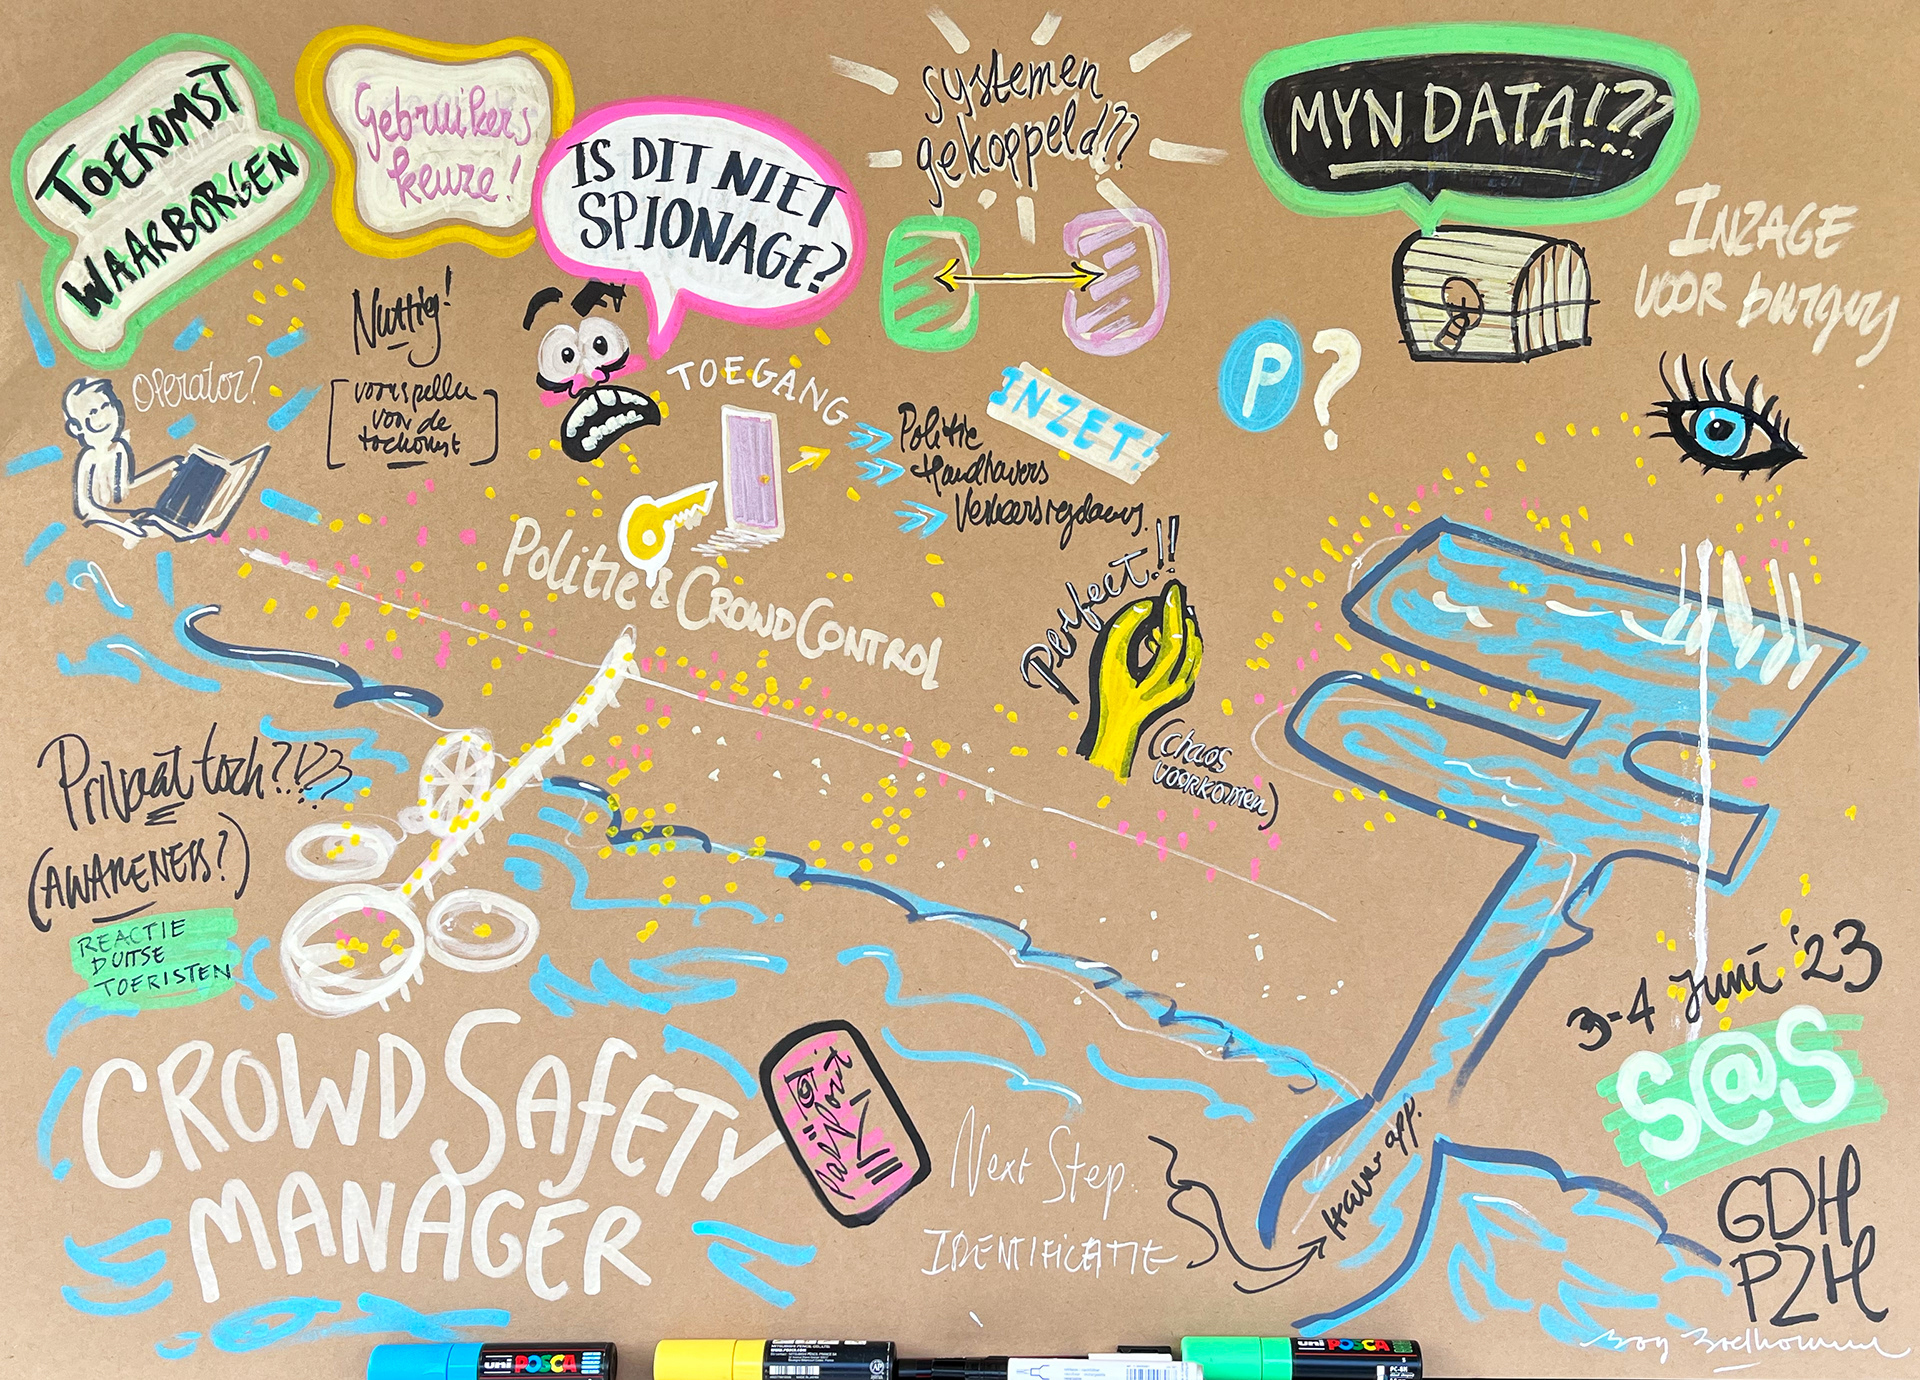 TOEKOMST
WAARBORGEN
Gebruikers
keuze!
IS DIT NIET
SPIONAGE?
systemen
gekoppeld??
MYN DATA!??
INZAGE
VOOR burgers
Operator?
Nuttig!
[voorspellen
voor de
toekomst]
TOEGANG
INZET!
Politie
Handhavers
Verkeersregelaars
P?
Politie & CROWD CONTROL
Perfect!!
(chaos
VOORKOMEN)
Privaat toch???
(AWARENESS?)
REACTIE
DUITSE
TOERISTEN
CROWD SAfETY
MANAGER
Paspoort
Next Step.
IDENTIFICATIE
Haven app.
3-4 Juni '23
S@S
GDH
PZH
uni POSCA
uni POSCA
PC-8K